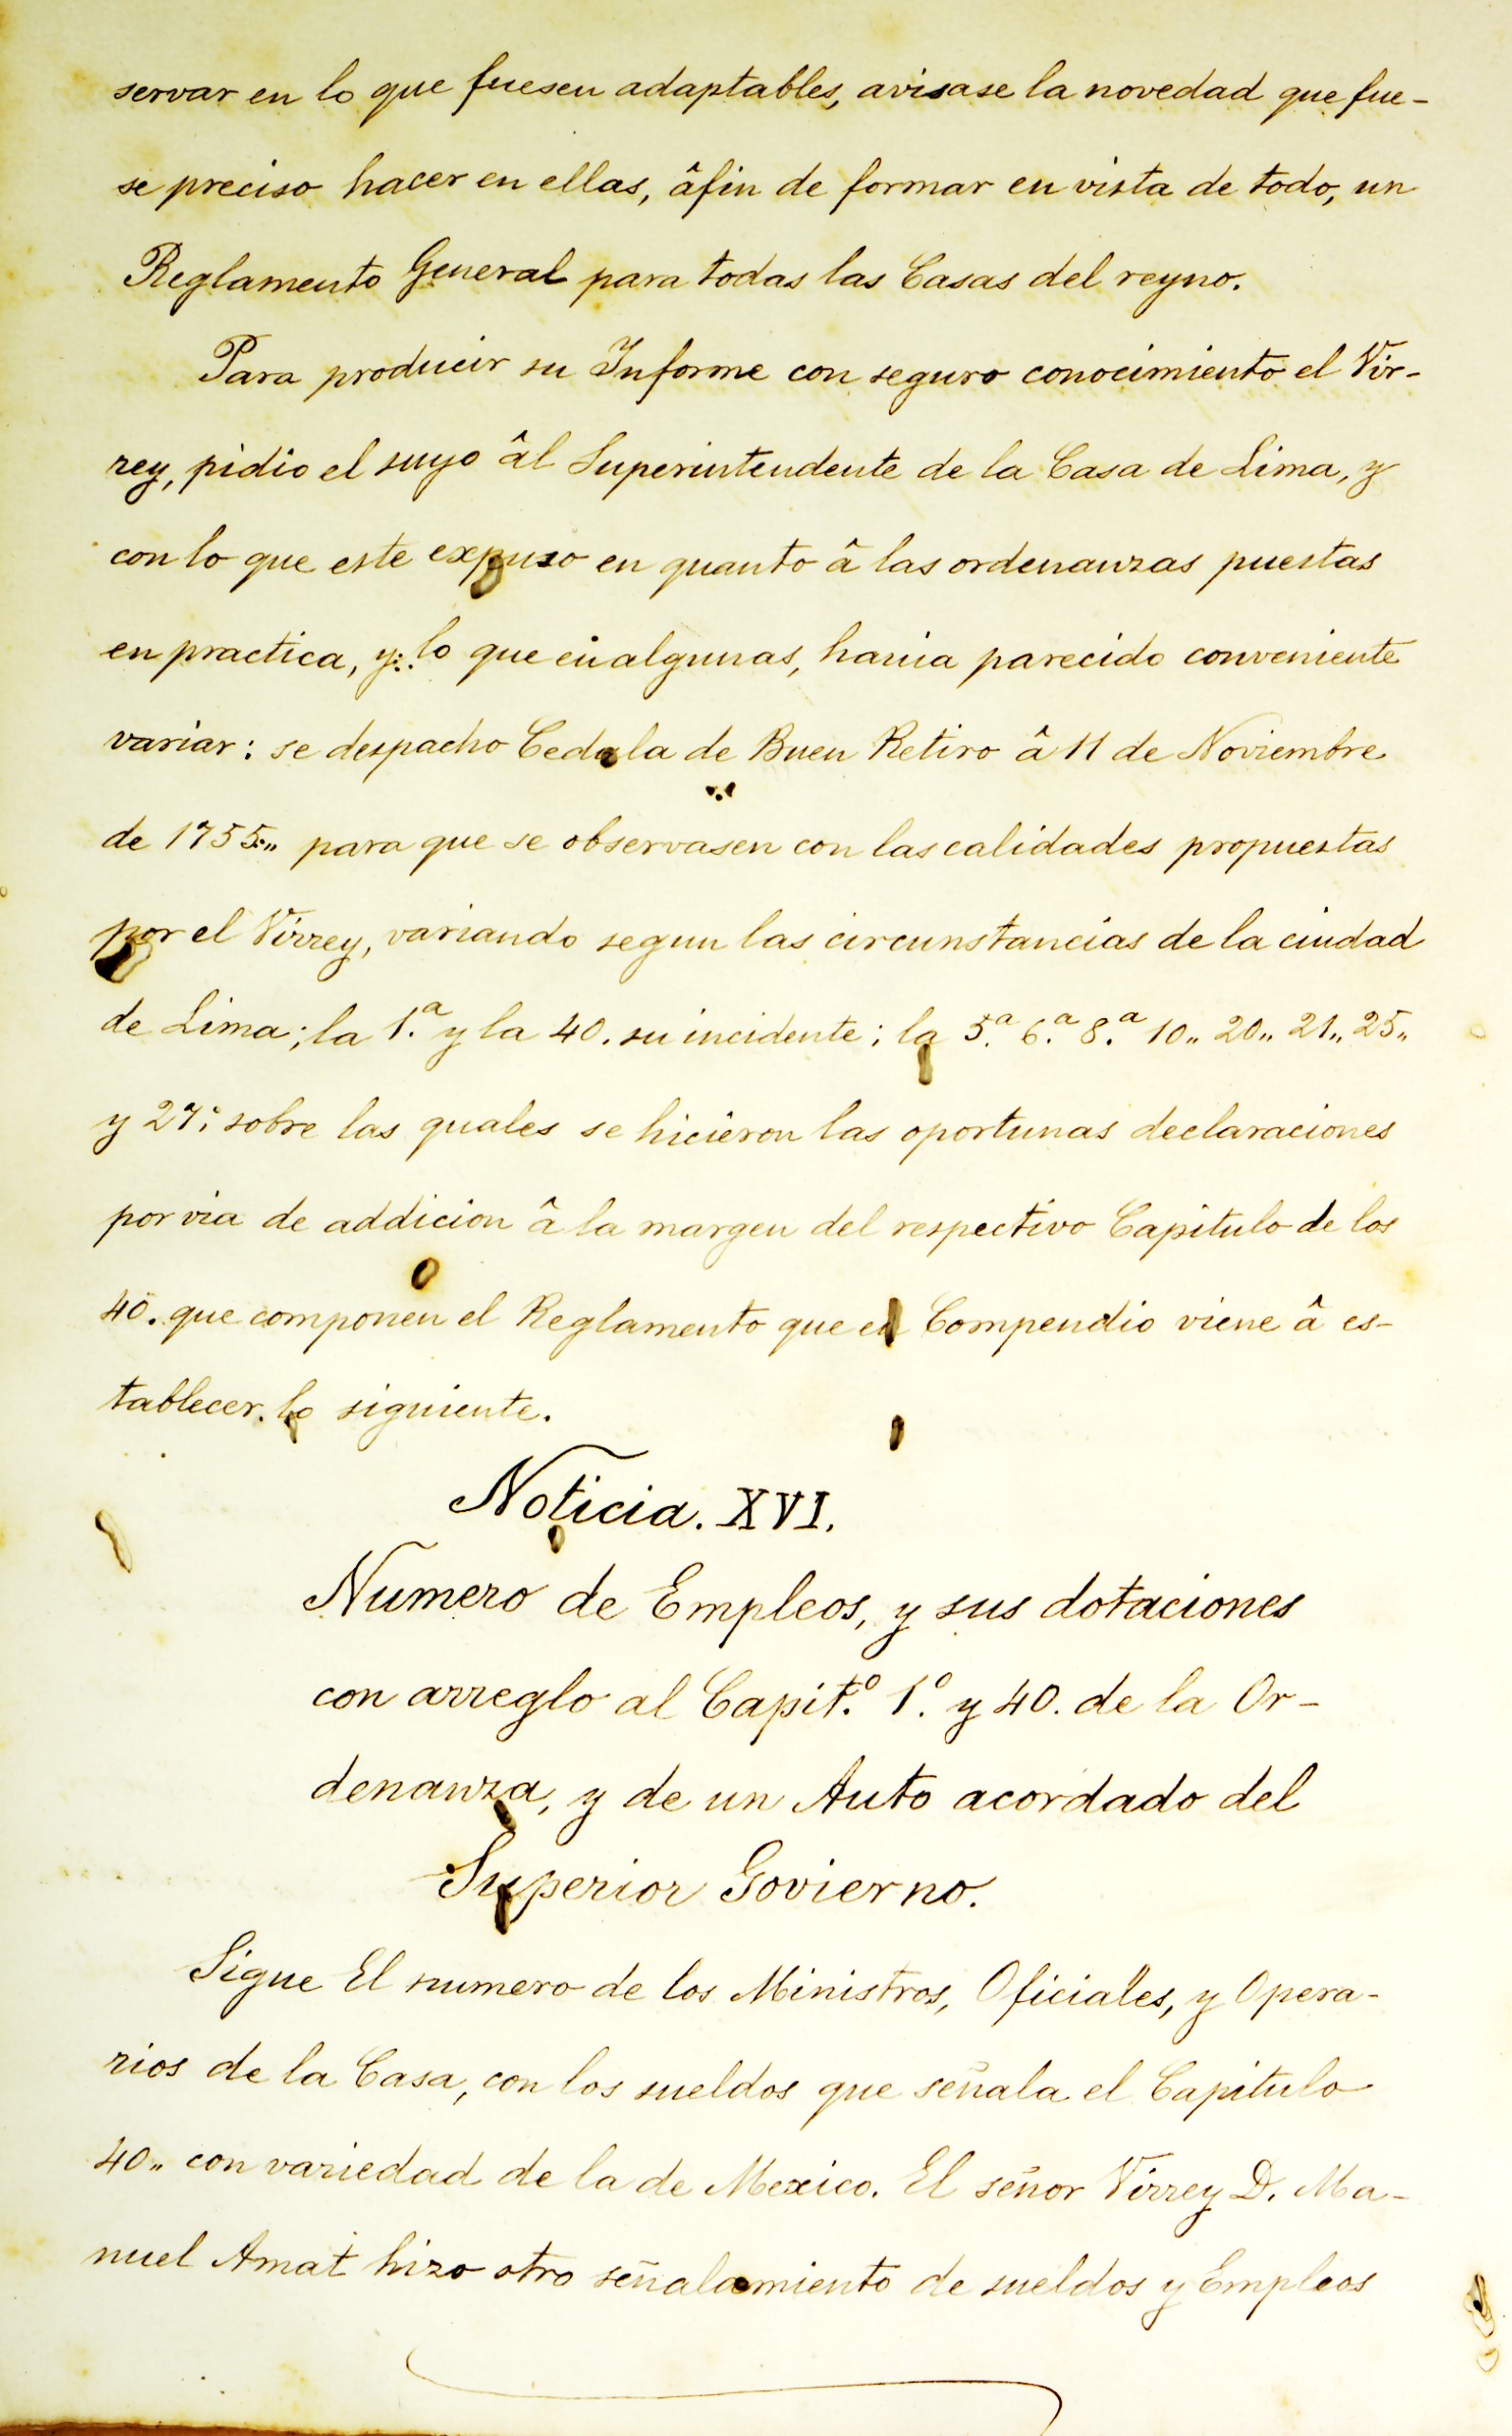 servar en lo que fuesen adaptables, avisase la novedad que fue-
se preciso hacer en ellas, âfin de formar en vista de todo, un
Reglamento General para todas las Casas del reyno.
Para producir su Informe con seguro conocimiento el Vir-
rey, pidio el suyo âl Superintendente de la Casa de Lima, y
con lo que este expuso en quanto â las ordenanzas puestas
en practica, y lo que en algunas, havia parecido conveniente
variar: se despacho Cedula de Buen Retiro â 11 de Noviembre
de 1755.„ para que se observasen con las calidades propuestas
por el Virrey, variando segun las circunstancias de la ciudad
de Lima; la 1.ª y la 40. su incidente; la 5.ª 6.ª 8.ª 10„ 20„ 21„ 25„
y 27: sobre las quales se hicieron las oportunas declaraciones
por via de addicion â la margen del respectivo Capitulo de los
40. que componen el Reglamento que en Compendio viene â es-
tablecer lo siguiente.
Noticia. XVI.
Numero de Empleos, y sus dotaciones
con arreglo al Capit.º 1.º y 40. de la Or-
denanza, y de un Auto acordado del
Superior Govierno.
Sigue El numero de los Ministros, Oficiales, y Opera-
rios de la Casa, con los sueldos que señala el Capitulo
40„ con variedad de la de Mexico. El señor Virrey D. Ma-
nuel Amat hizo otro señalamiento de sueldos y Empleos